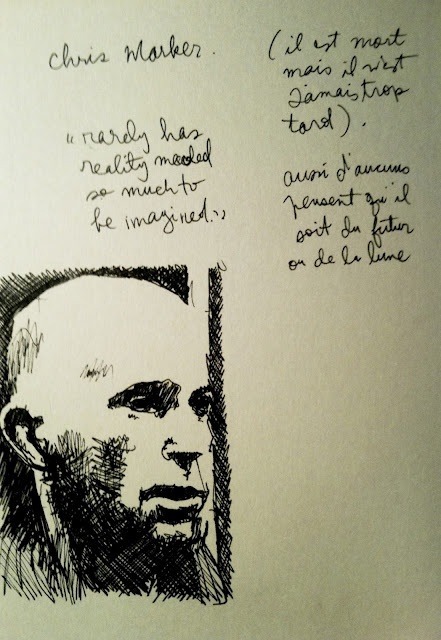 chris Marker.
"rarely has
reality needed
so much to
be imagined."
(il est mort
mais il n'est
jamais trop
tard).
aussi d'aucuns
pensent qu'il
soit du futur
ou de la lune